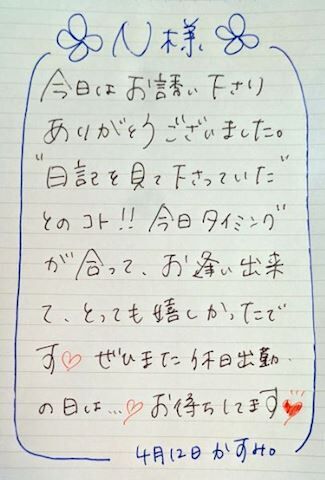 N様
今日はお誘い下さり
ありがとうございました。
"日記を見て下さっていた"
とのコト!! 今日タイミング
が合って、お逢い出来
て、とっても嬉しかったで
す♡ ぜひまた休日出勤
の日は…♡お待ちしてます♥
4月12日 かすみ。